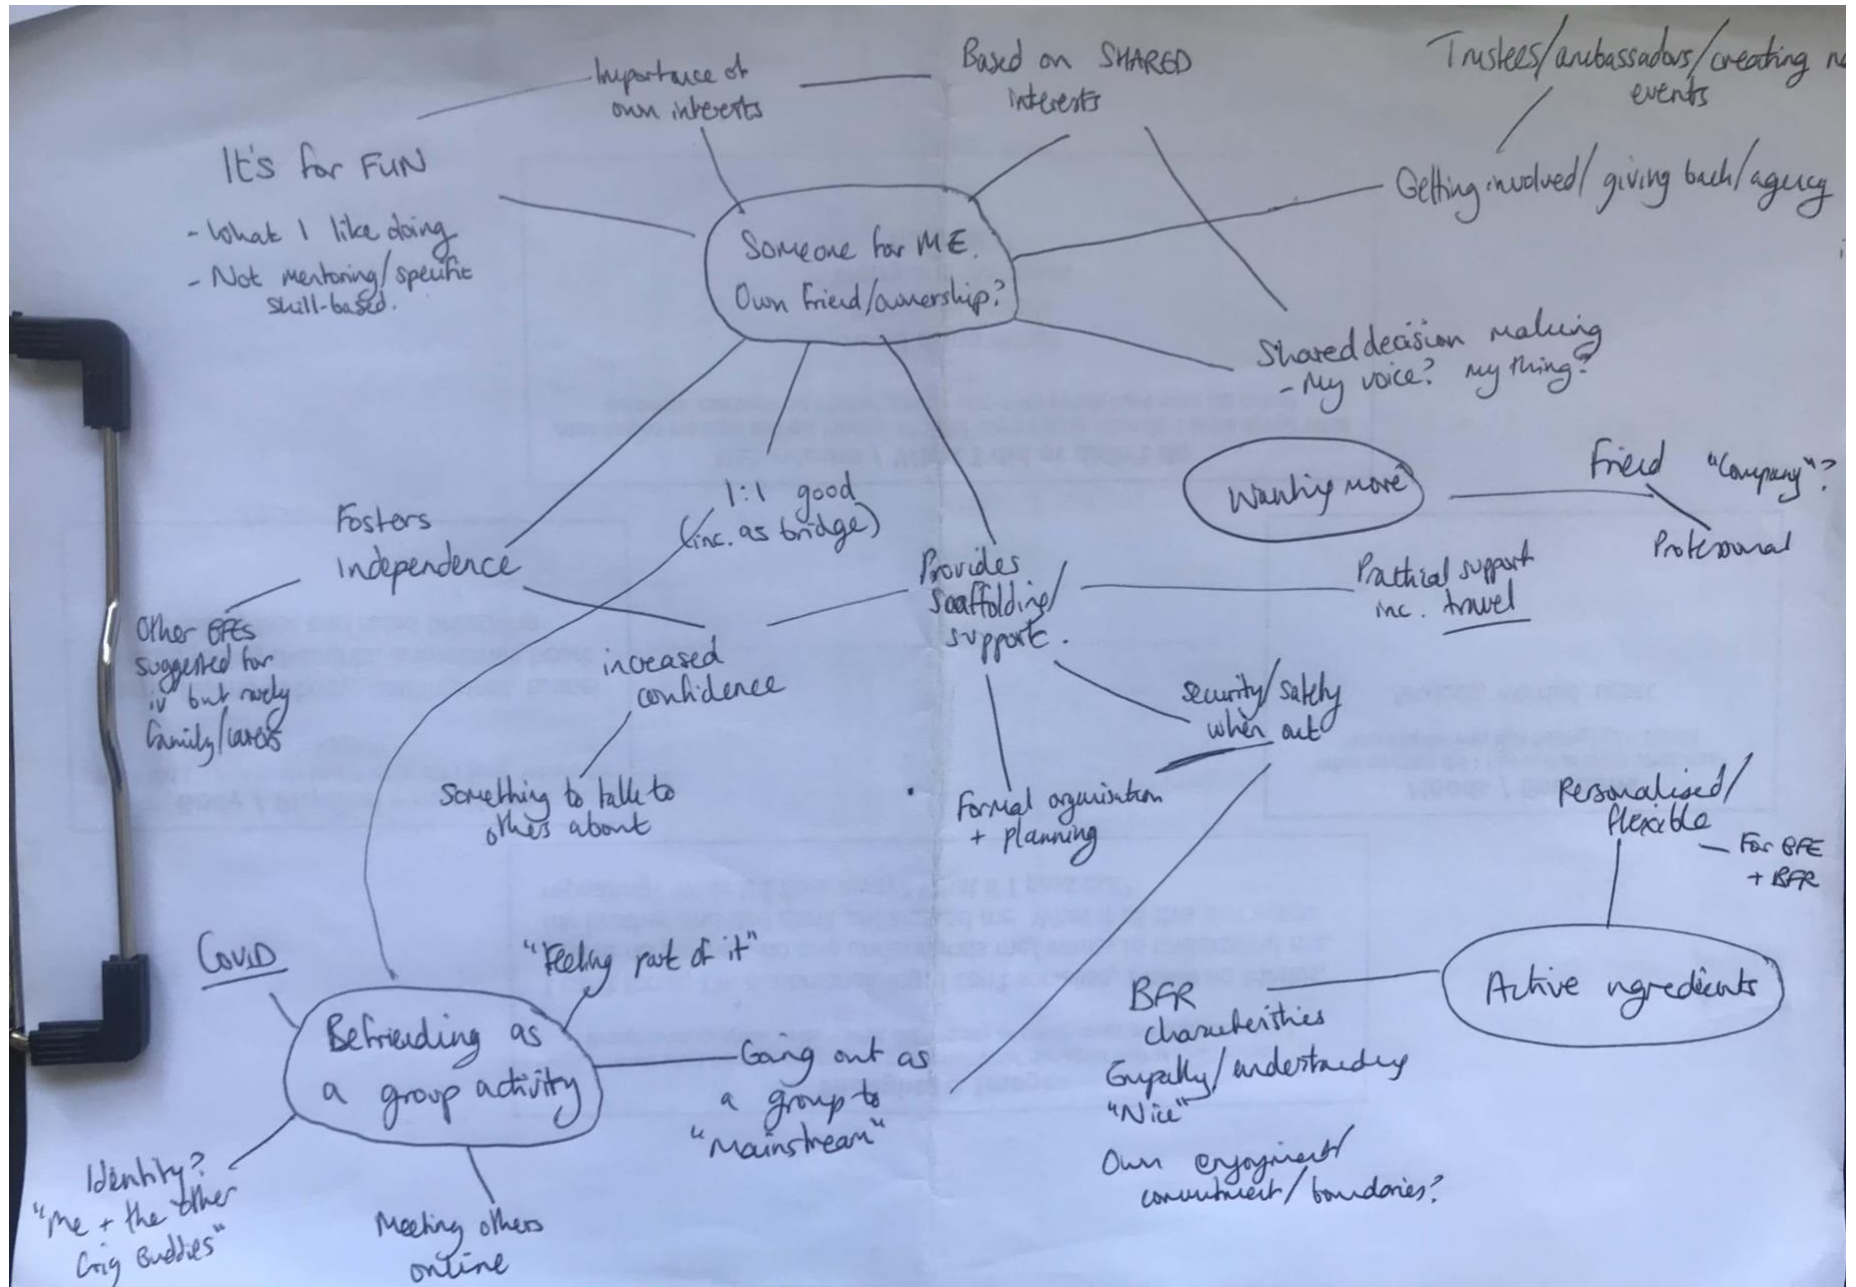 Importance of
own interests
Based on SHARED
interests
Trustees/ambassadors/creating
events
It's for FUN
- What I like doing
- Not mentoring/specific
skill-based.
Someone for ME.
Own friend/ownership?
Getting involved/giving back/agency
Shared decision making
- My voice? my thing?
Wanting more
Friend "Company"?
Professional
1:1 good
(inc. as bridge)
Fosters
independence
Provides
scaffolding/
support.
Practical support
inc. travel
Other BFEs
suggested for
iv but rarely
family/carers
increased
confidence
security/safety
when out
Something to talk to
others about
Formal organisation
+ planning
Personalised/
flexible
- For BFE
+ BFR
COVID
"Feeling part of it"
Befriending as
a group activity
Going out as
a group to
"Mainstream"
BFR
characteristics
Empathy/understanding
"Nice"
Own enjoyment/
commitment/boundaries?
Active ingredients
Identity?
"Me + the other
Gig Buddies"
Meeting others
online